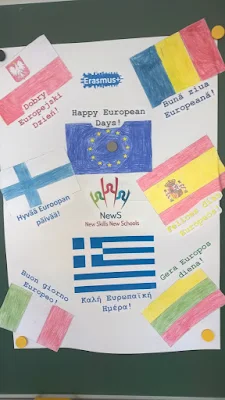 Erasmus+
Dobry
Europejski
Dzień!
Happy European
Days!
Bună ziua
Europeană!
Hyvää Euroopan
päivää!
NewS
New Skills New Schools
Buon giorno
Europeo!
Καλή Ευρωπαϊκή
Ημέρα!
Gera Europos
diena!